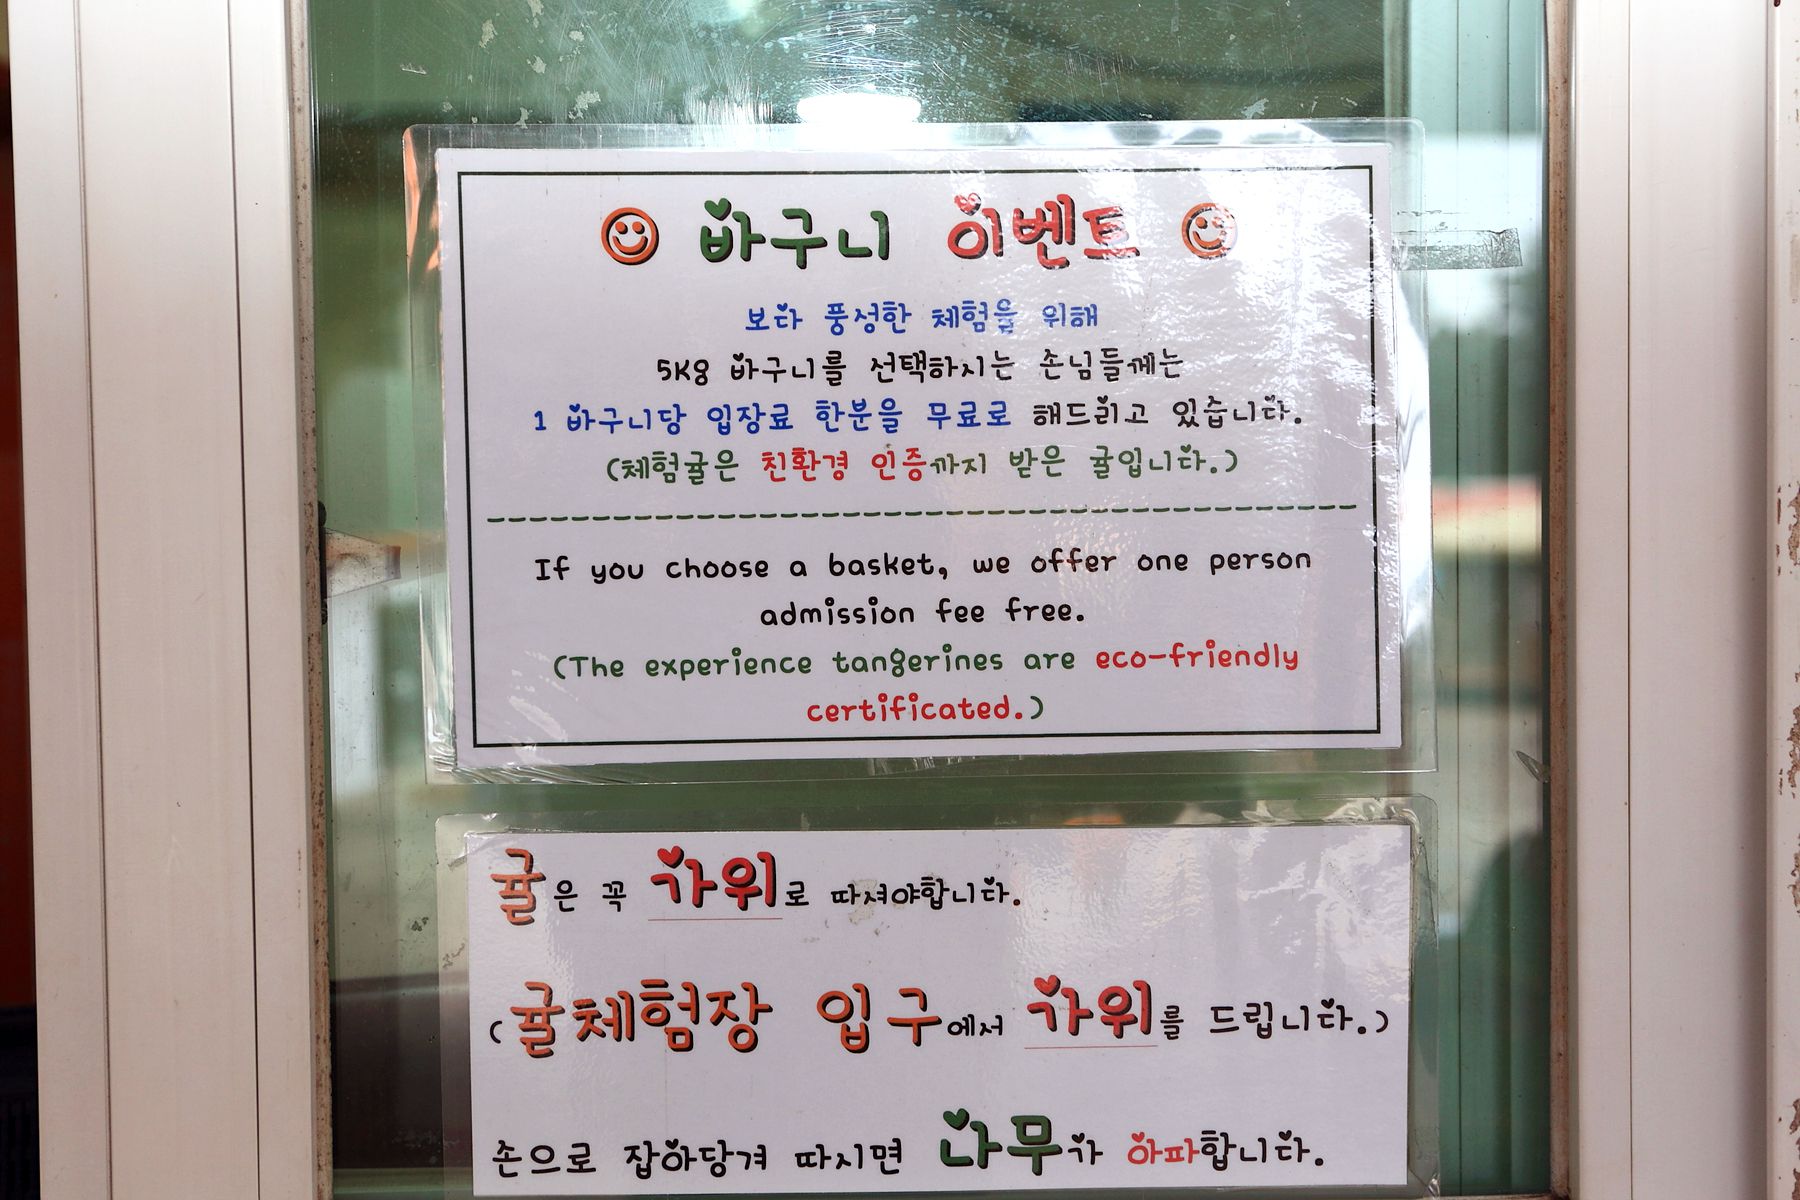 바구니 이벤트
보다 풍성한 체험을 위해
5Kg 바구니를 선택하시는 손님들께는
1 바구니당 입장료 한분을 무료로 해드리고 있습니다.
(체험귤은 친환경 인증까지 받은 귤입니다.)
If you choose a basket, we offer one person
admission fee free.
(The experience tangerines are eco-friendly
certificated.)
귤은 꼭 가위로 따셔야합니다.
(귤체험장 입구에서 가위를 드립니다.)
손으로 잡아당겨 따시면 나무가 아파합니다.